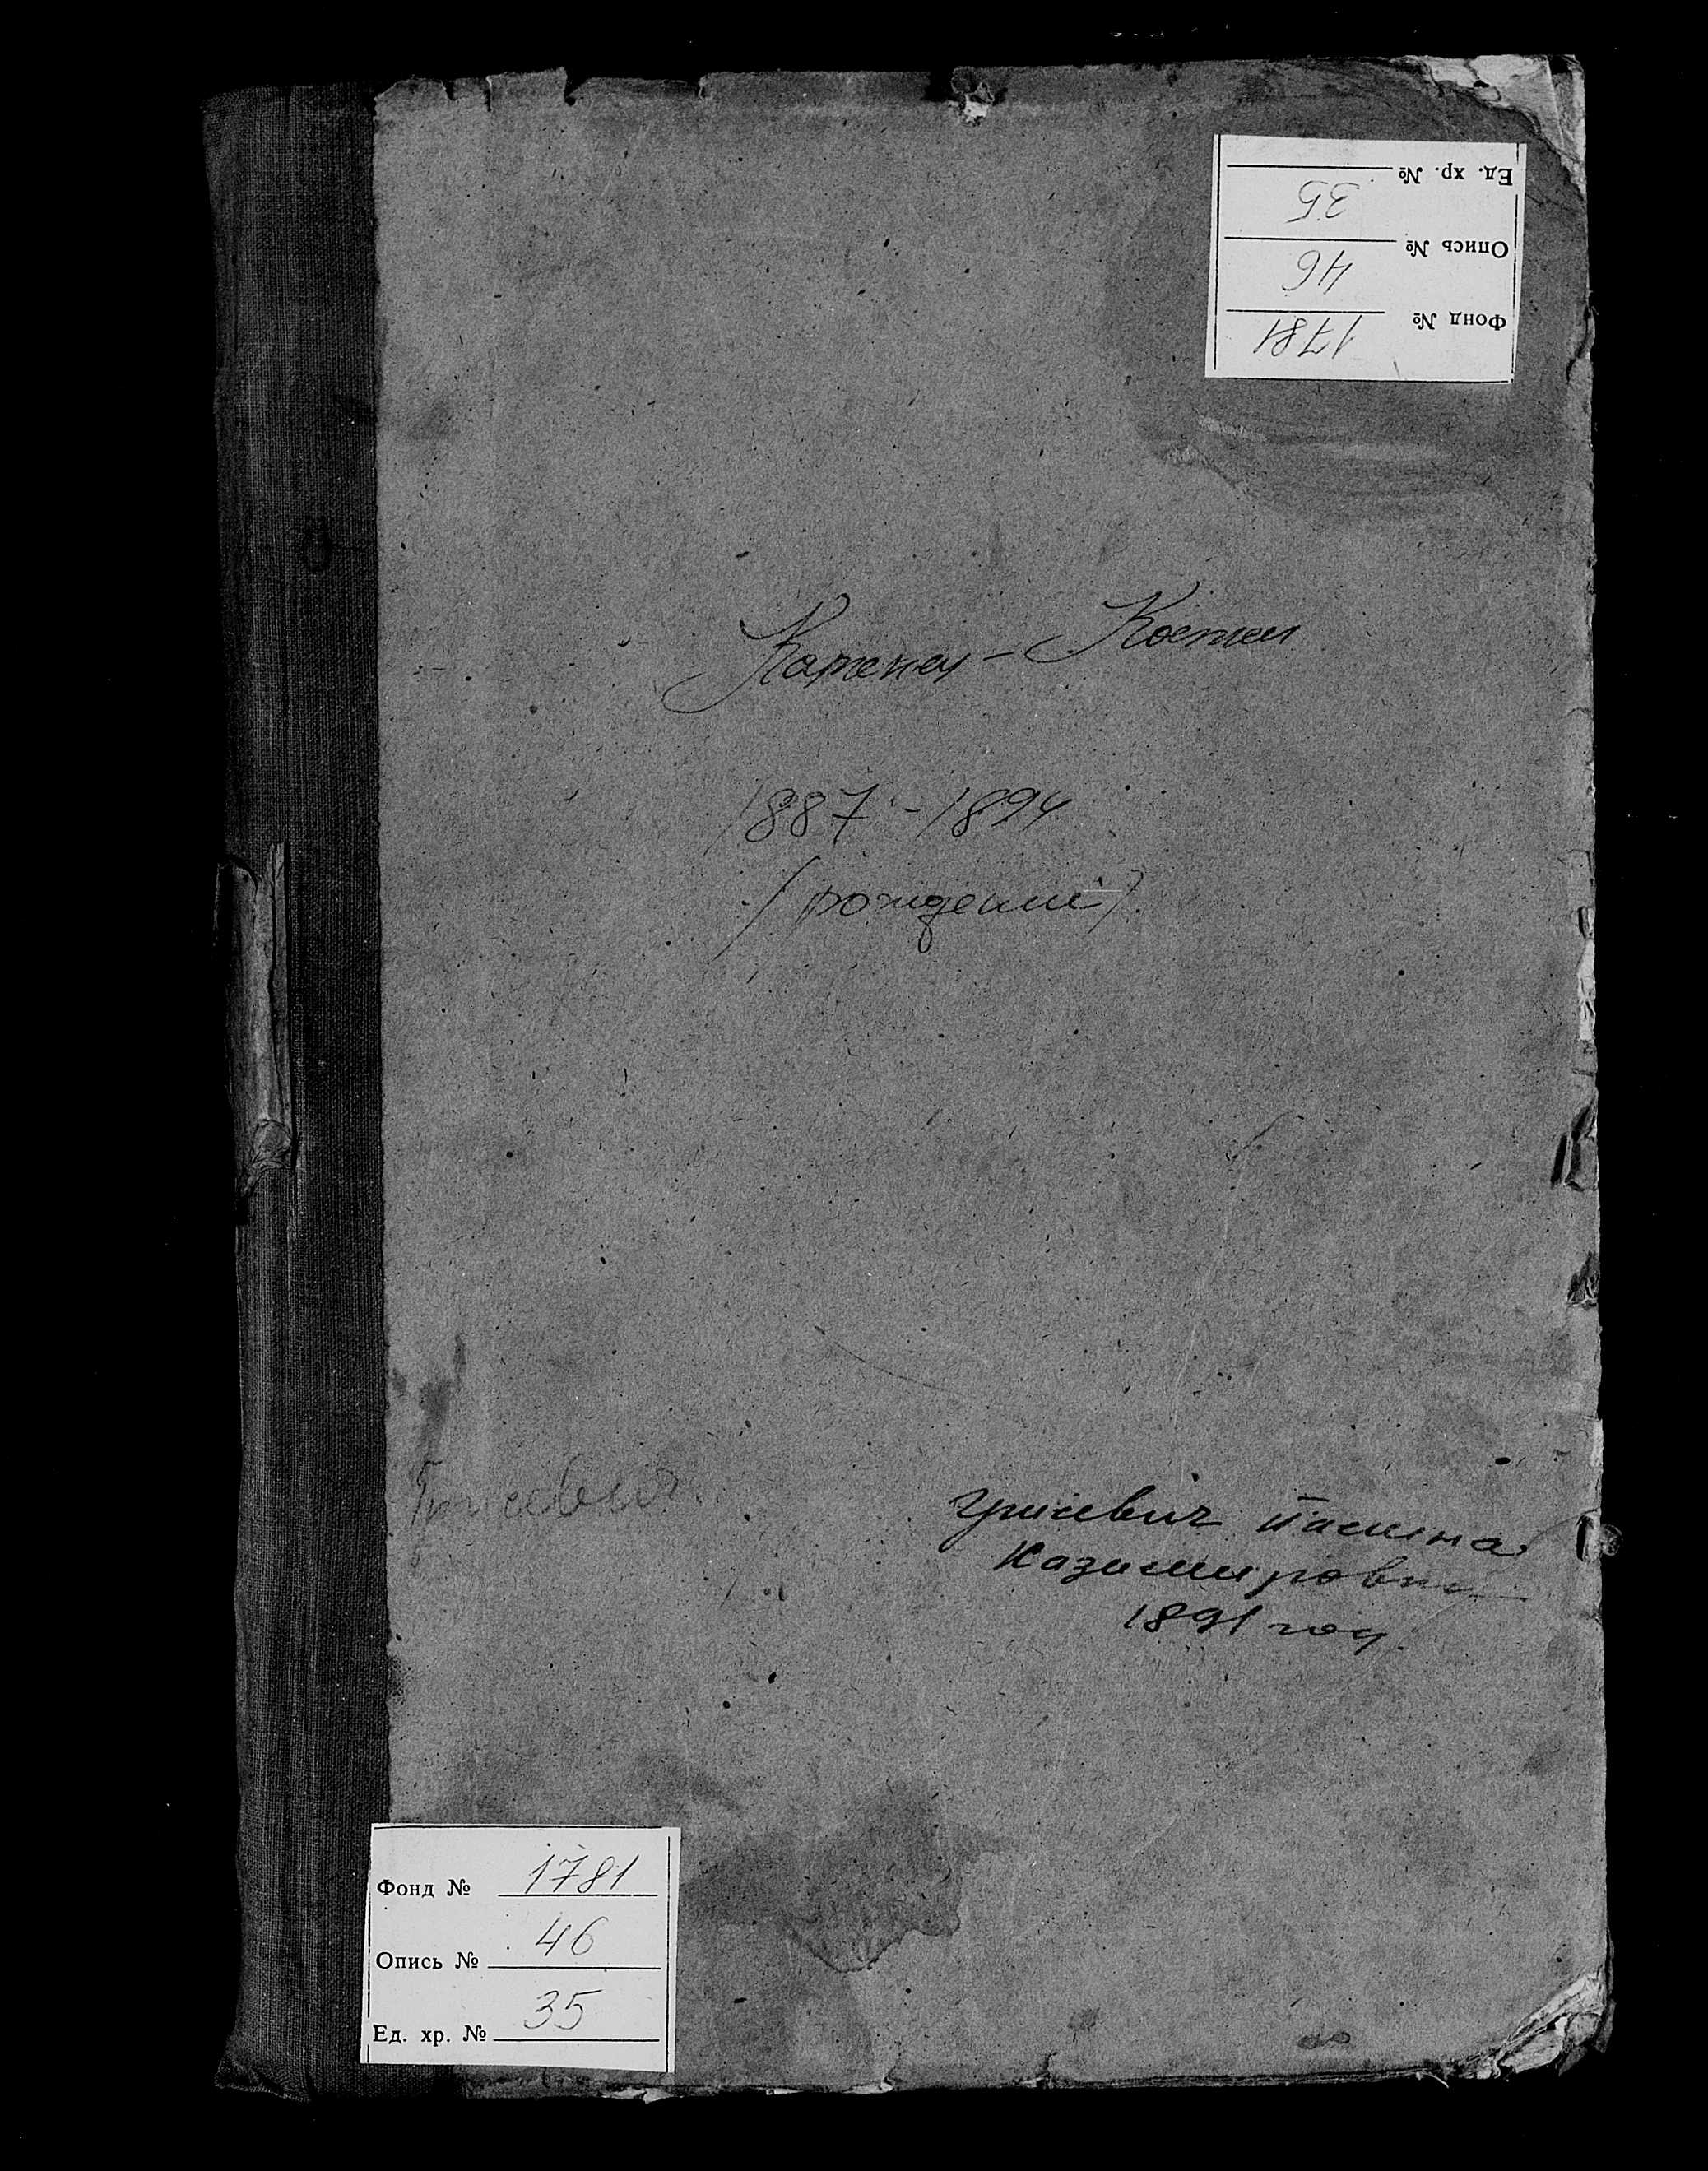 Ед. хр. № 35
Опись № 46
Фонд № 1781
Каменец - Костел
1887 - 1894
(рождение)
Казимировна
1891 год.
Фонд № 1781
Опись № 46
Ед. хр. № 35